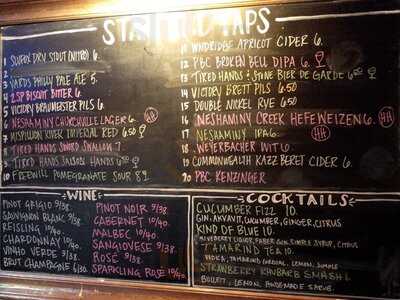 TAPS
1 SUFFOLK DRY STOUT (NITRO) 6.
2
3 YARDS PHILLY PALE ALE 5.
4 2SP BISCUIT BITTER 6.
5 VICTORY BRAUMEISTER PILS 6.
6 NESHAMINY CHURCHVILLE LAGER 6.
7 MISPILLION RIVER IMPERIAL RED 6.50
8 TIRED HANDS SHALLOW 7.
9 TIRED HANDS SAISON HANDS
10 FREEWILL POMEGRANATE SOUR
11 WYNDRIDGE APRICOT CIDER 6.
12 PBC BROKEN BELL DIPA 6.
13 TIRED HANDS & STONE BIER DE GARDE 6.50
14 VICTORY BRETT PILS 6.50
15 DOUBLE NICKEL RYE 6.50
16 NESHAMINY CREEK HEFEWEIZEN 6.
17 NESHAMINY IPA 6.
18 WEYERBACHER WIT 6.
19 COMMONWEALTH KAZZ BERET CIDER 6.
20 PBC KENZINGER
WINE
PINOT GRIGIO 9/38.
SAUVIGNON BLANC 9/38.
REISLING 10/40.
CHARDONNAY 10/40.
VINHO VERDE 9/38.
BRUT CHAMPAGNE
PINOT NOIR 9/38.
CABERNET 10/40.
MALBEC 10/40.
SANGIOVESE 9/38.
ROSÉ 9/38.
SPARKLING ROSÉ 10/40.
COCKTAILS
CUCUMBER FIZZ 10.
GIN, AKVAVIT, CUCUMBER, GINGER, CITRUS
KIND OF BLUE 10.
BLUEBERRY LIQUOR, FABER GIN, SIMPLE SYRUP, CITRUS
TAMARIND TEA 10.
VODKA, TAMARIND CORDIAL, LEMON, SIMPLE
STRAWBERRY RHUBARB SMASH
BULLEIT, LEMON, HOMEMADE